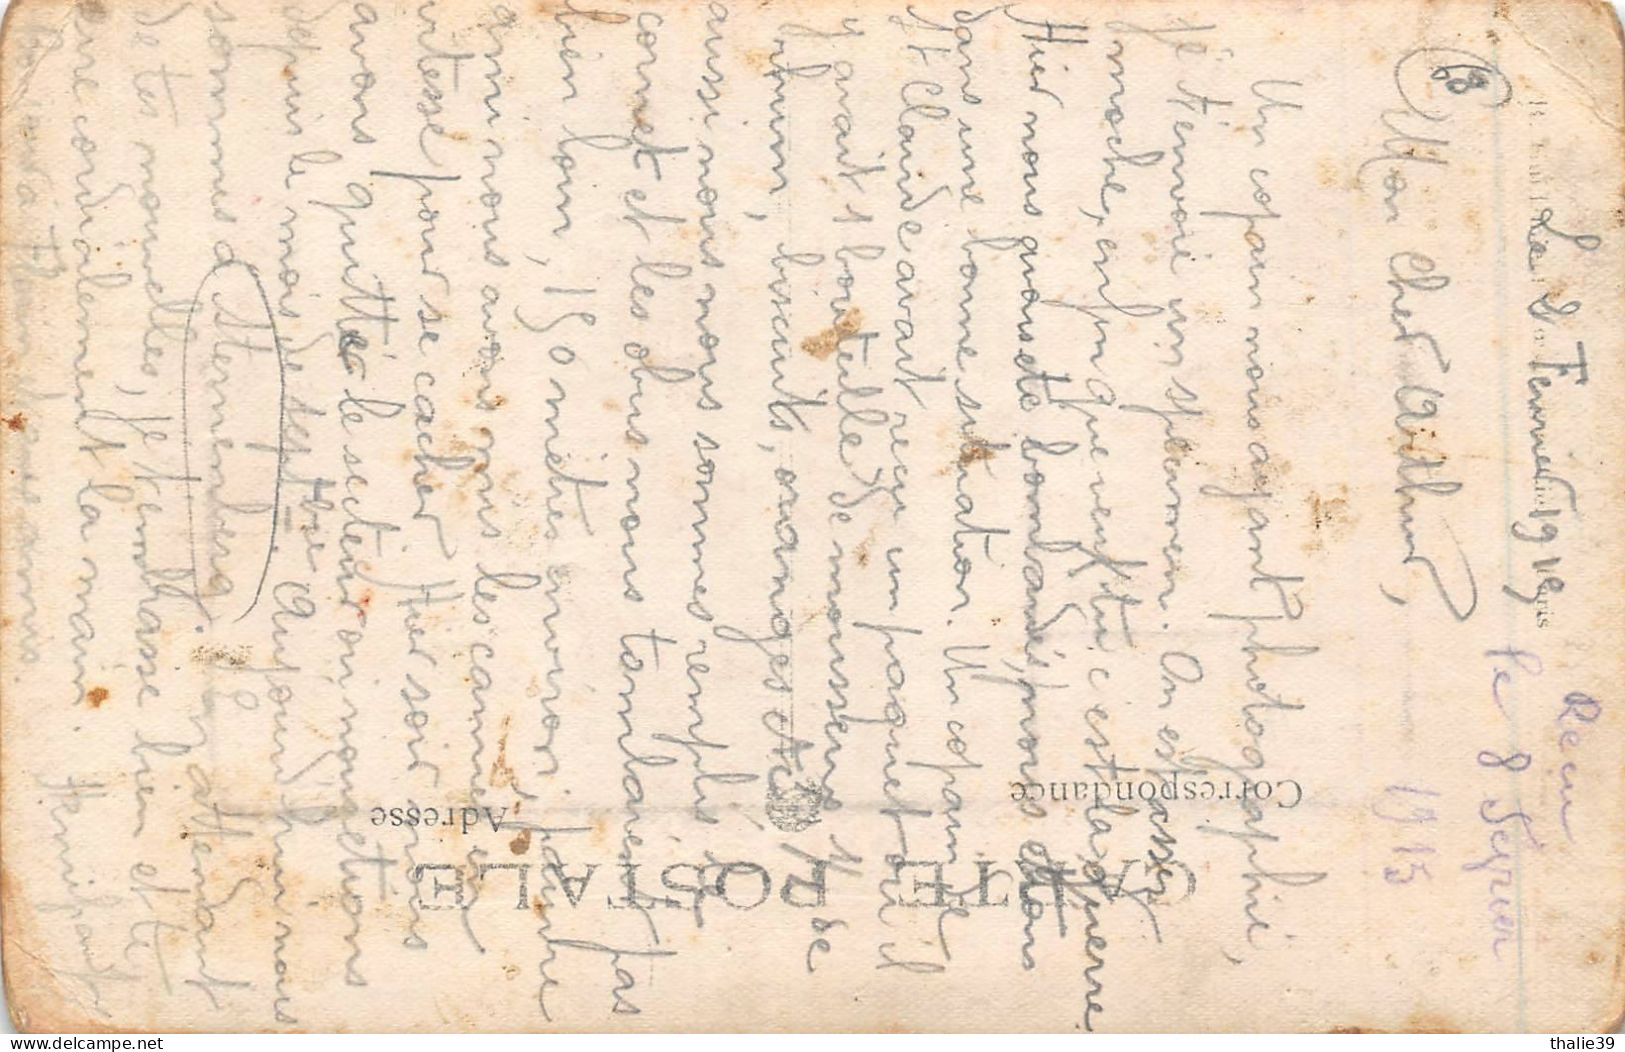 Le 2 Fevrier 1915
Recu
le 8 Fevrier
1915
68
Mon cher Arthur,
Un copain nous ayant photographié,
je t'envoie un spécimen. On est assez
moche, enfin que veux-tu c'est la guerre
Hier nous avons été bombardés, nous étions
dans une bonne situation. Un copain de
St Claude avait reçu un paquet où il
y avait 1 bouteille de mousseux, 1 de
rhum, biscuits, oranges etc.
aussi nous nous sommes remplis le
cornet et les obus nous tombaient pas
bien loin, 150 mètres environ, pendre
qui nous avons mis les cannes en
vitesse pour se cacher. Hier soir nous
avons quitté le secteur où nous étions
depuis le mois de Septbre aujourd'hui nous
sommes à Sternenberg. En attendant
de tes nouvelles, je t'embrasse bien et te
serre cordialement la main.
CARTE POSTALE
Correspondance
Adresse
Paris
thalie39